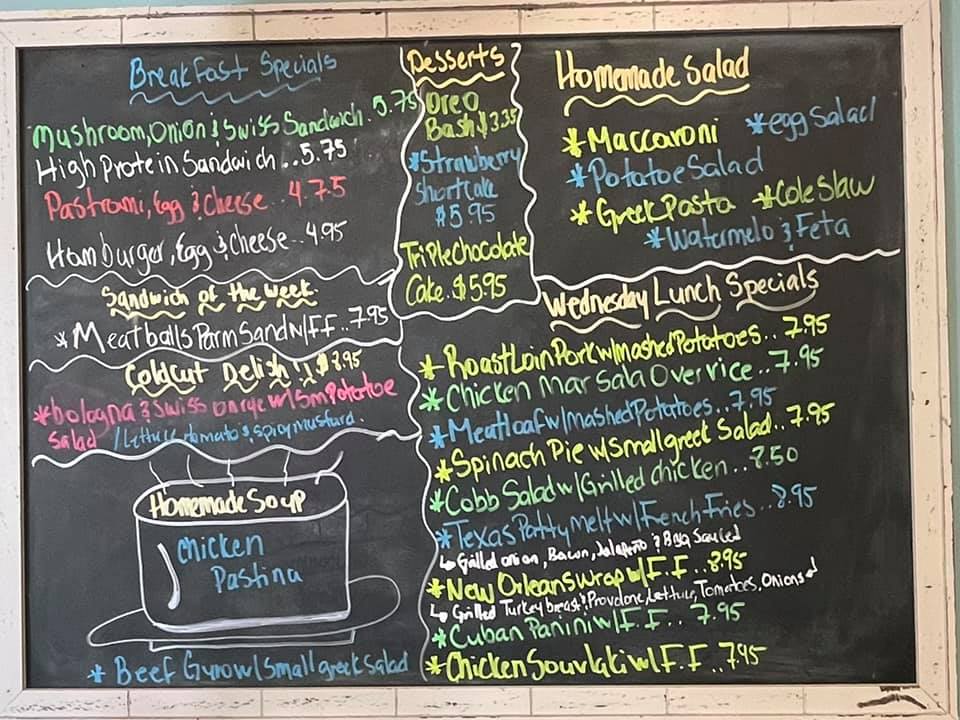 BreakFast Specials
Mushroom, Onion & Swiss Sandwich. 5.75
High Protein Sandwich...5.75
Pastrami, Egg & Cheese..4.75
Hamburger, Egg & Cheese..4.95
Sandwich of the Week.
*Meatballs Parm Sand W/F.F..7.95
Coldcut Delish!
*bologna & Swiss on rye w/Sm Potatoe
Salad /Lettuce, tomato & spicy mustard.
Homemade Soup
Chicken
Pastina
* Beef Gyro w/ Small greek Salad
Desserts
Oreo
Bash $3.35
*Strawberry
Shortcake
$5.95
Triple Chocolate
Cake. $5.95
Homemade Salad
*Maccaroni *egg Salad
*Potatoe Salad
*Greek Pasta *Cole Slaw
*Watermelo & Feta
Wednesday Lunch Specials
*Roast Loin Pork w/mashed Potatoes..7.95
*Chicken Marsala Over rice..7.95
*Meatloaf w/Mashed Potatoes..7.95
*Spinach Pie w/Small greek Salad..7.95
*Cobb Salad w/Grilled chicken..8.50
*Texas Patty Melt w/French Fries..8.95
↳ Grilled onion, Bacon, Jalapeño & BBQ Sauced
*New Orleans Wrap w/F.F..8.95
↳ Grilled Turkey breast, Provolone, Lettuce, Tomatoes, Onions
*Cuban Panini w/F.F.. 7.95
*Chicken Souvlaki w/F.F..7.95